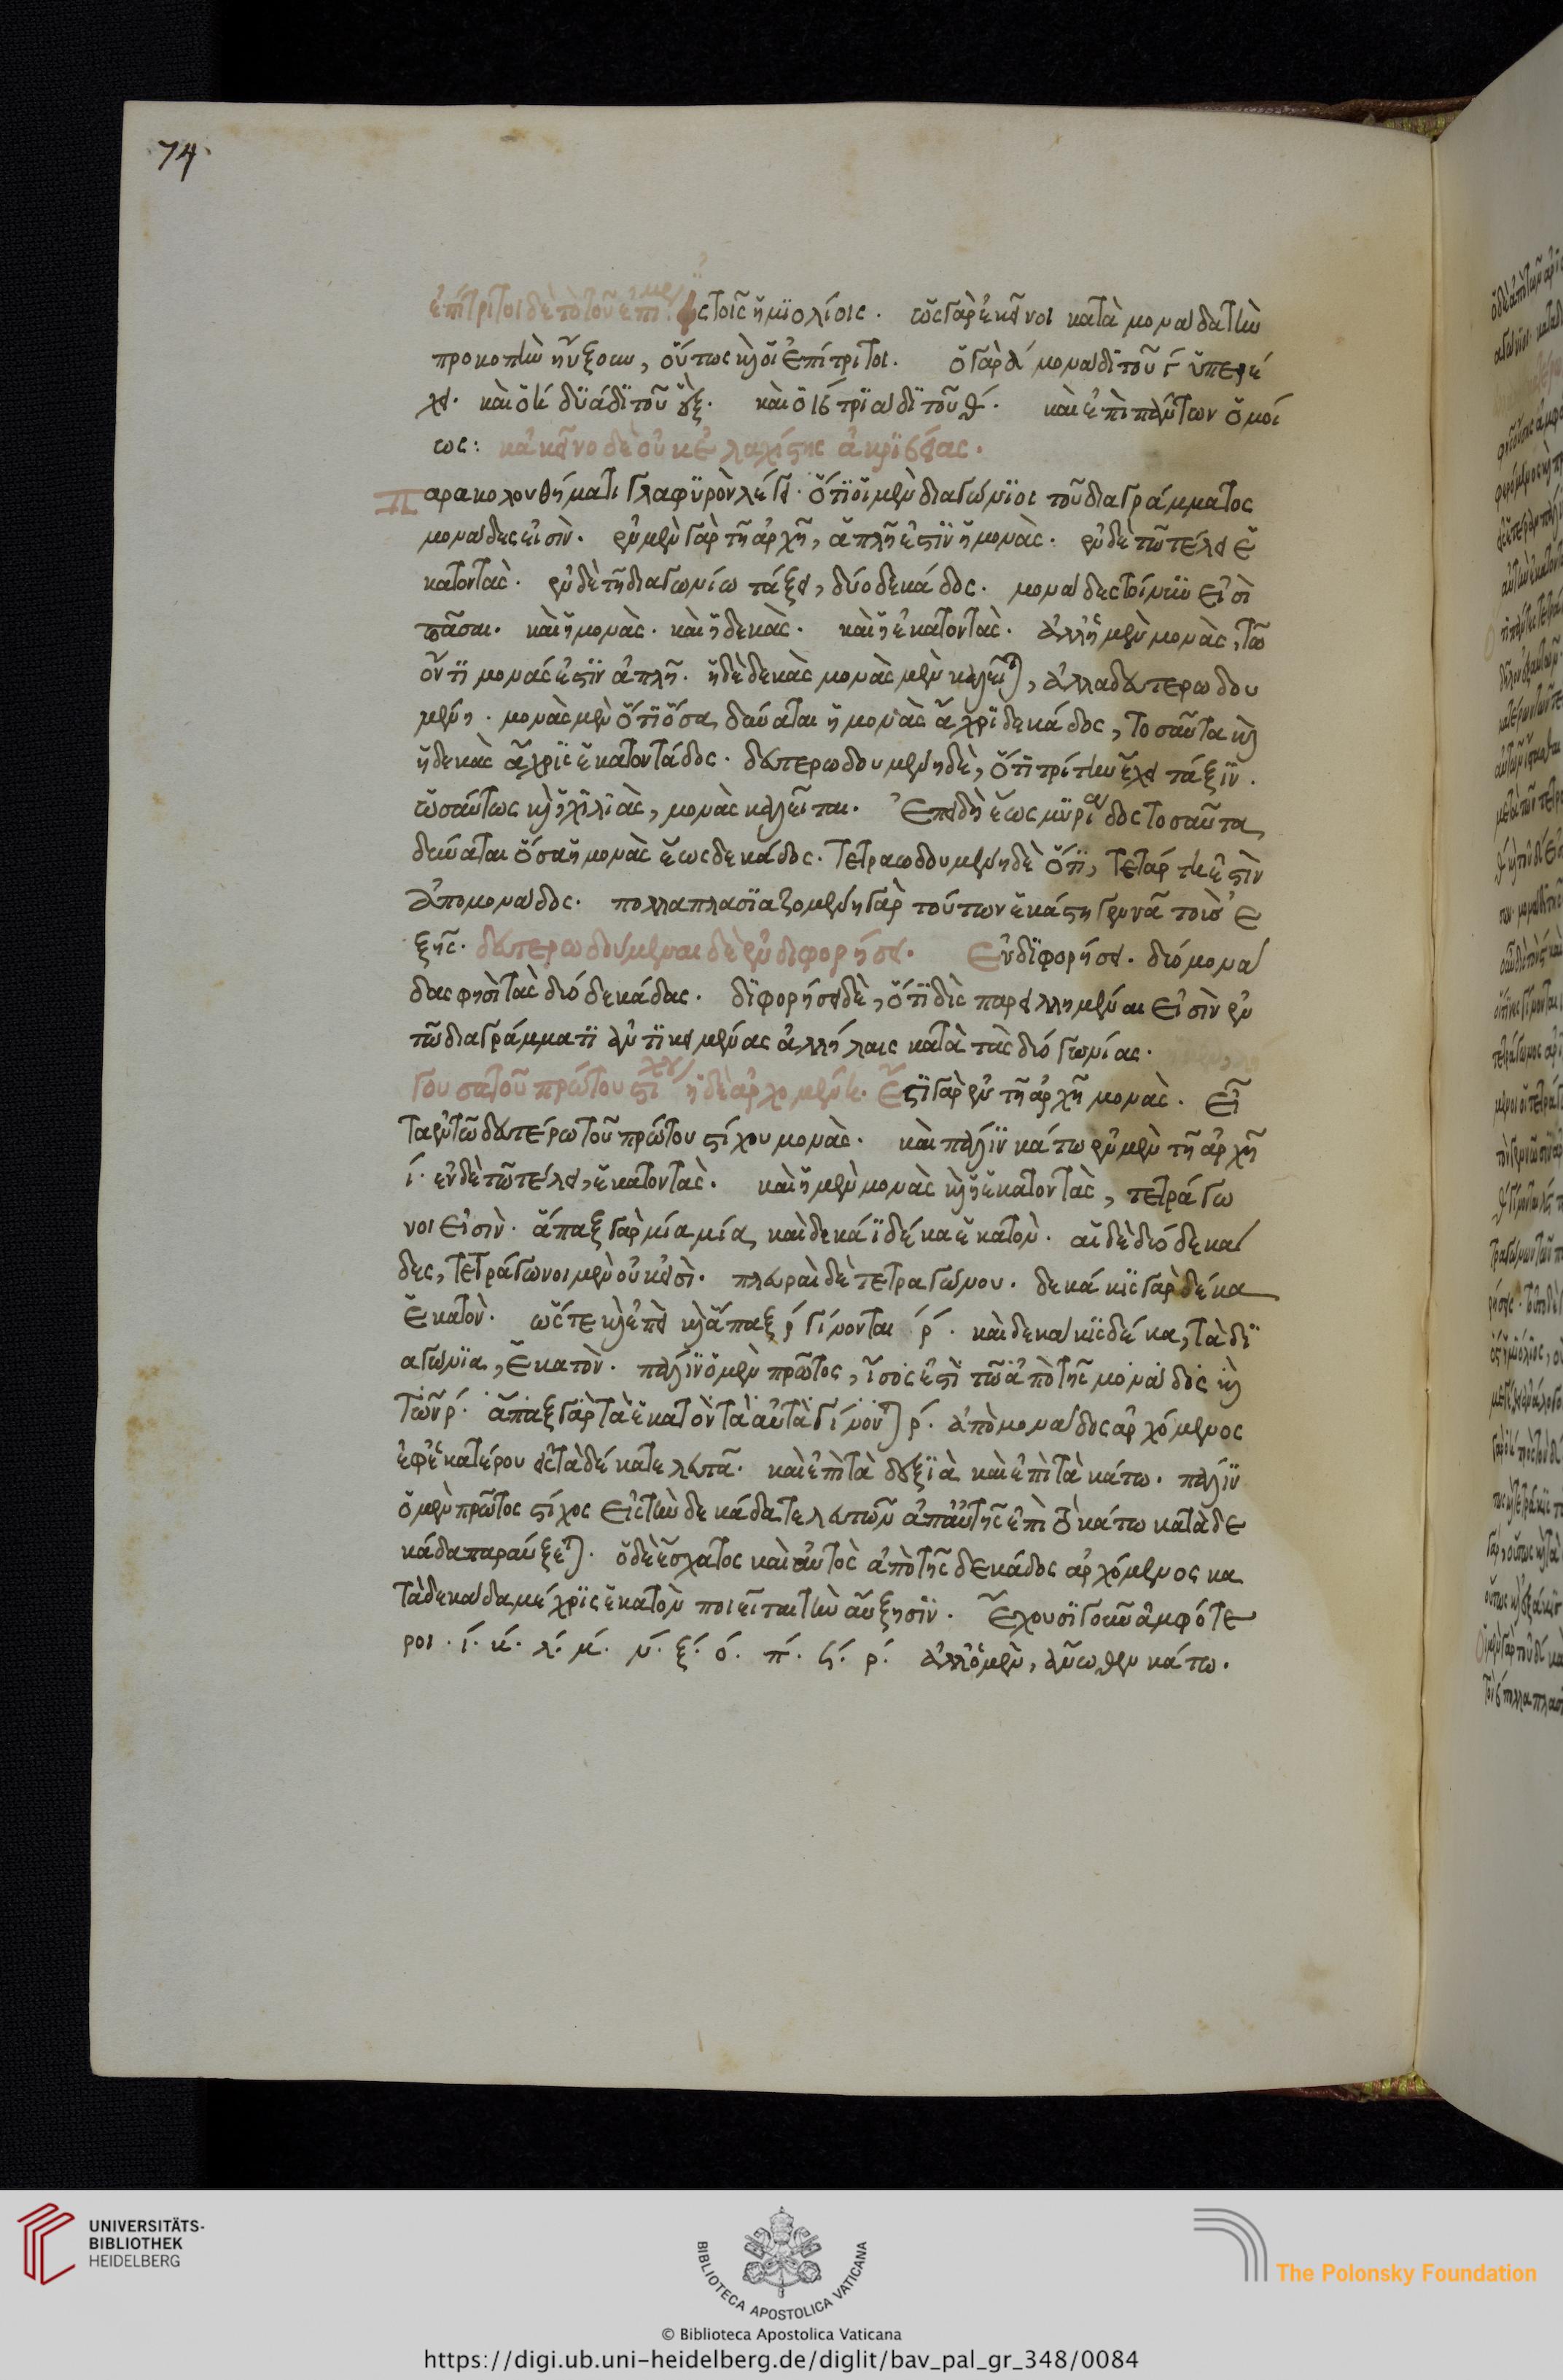 74
ἐπίτριτοι δὲ τὸ τοῦ ἐπιμερ τοῖς ἡμιολίοις. ὡς γὰρ ἐκεῖνοι κατὰ μονάδα τὴν
προκοπὴν ηὖξουν, οὕτως καὶ οἱ ἐπίτριτοι. ὁ γὰρ δ´ μονάδι τοῦ γ´ ὑπερέ
χει. καὶ ὁ η´ δυάδι τοῦ ἓξ. καὶ ὁ ιβ´ τριάδι τοῦ θ´. καὶ ἐπὶ πάντων ὁμοί
ως: κἀκεῖνο δὲ οὐκ ἐλαχίστης ἀκριβείας.
Παρακολουθήματι γλαφυρὸν λέγει. ὅτι οἱ μὲν διαγώνιοι τοῦ διαγράμματος
μονάδες εἰσὶν. ἐν μὲν γὰρ τῇ ἀρχῇ, ἁπλῆ ἐστὶν ἡ μονὰς. ἐν δὲ τῷ τέλει ἑ
κατοντὰς. ἐν δὲ τῇ διαγωνίω τάξει, δύο δεκάδες. μονάδες τοίνυν εἰσὶ
πᾶσαι. καὶ ἡ μονὰς. καὶ ἡ δεκὰς. καὶ ἡ ἑκατοντὰς. ἀλλ' ἡ μὲν μονὰς, τῶ
ὄντι μονάς ἐστὶν ἁπλῆ. ἡ δὲ δεκὰς μονὰς μὲν καλεῖται, ἀλλὰ δευτερωδου
μένη. μονὰς μὲν ὅτι ὅσα δύναται ἡ μονὰς ἄχρι δεκάδος, τοσαῦτα καὶ
ἡ δεκὰς ἄχρις ἑκατοντάδος. δευτερωδουμένη δὲ, ὅτι τρίτην ἔχει τάξιν.
ὡσαύτως καὶ ἡ χιλιὰς, μονὰς καλεῖται. Ἐπειδὴ ἕως μυριάδος τοσαῦτα
δύναται ὅσα ἡ μονὰς ἕως δεκάδος. τετραωδουμένη δὲ ὅτι, τετάρτη ἐστὶν
ἀπὸ μονάδος. πολλαπλασιαζομένη γὰρ τούτων ἑκάστη γεννᾶ τοὺσ ἑ
ξῆς. δευτερωδούμεναι δὲ ἐν διφορήσει. Ἐν διφορήσει. διό μονά
δας φησὶ τὰς δύο δεκάδας. διφορήσει δὲ, ὅτι δὶς παρειλημμέναι εἰσὶν ἐν
τῶ διαγράμματι ἀντικειμένας ἀλλήλαις κατὰ τὰς δύο γωνίας.
γουσα τοῦ πρώτου στίχου ἡ δὲ ἀρχομένη. Ἔστι γὰρ ἐν τῇ ἀρχῇ μονὰς. Εἶ
τα ἐν τῶ δευτέρω τοῦ πρώτου στίχου μονὰς. καὶ πάλιν κάτω ἐν μὲν τῇ ἀρχῇ
ι´. ἐν δὲ τῶ τέλει, ἑκατοντὰς. καὶ ἡ μὲν μονὰς καὶ ἡ ἑκατοντὰς, τετράγω
νοι εἰσὶν. ἅπαξ γὰρ μία μία, καὶ δεκάϊ δέκα ἑκατὸν. αἱ δὲ δύο δεκά
δες, τετράγωνοι μὲν οὐκ εἰσὶ. πλευραὶ δὲ τετραγώνου. δεκάκις γὰρ δέκα
ἑκατὸν. ὥστε καὶ ἐπεὶ καὶ ἅπαξ ρ´ γίνονται ρ´. καὶ δεκάκις δέκα, τὰ δι
αγώνια, ἑκατὸν. πάλιν ὁ μὲν πρῶτος, ἴσος ἐστὶ τῶ ἀπὸ τῆς μονάδος καὶ
τῶν ρ´. ἅπαξ γὰρ τὰ ἑκατὸν τὰ αὐτὰ γίνονται ρ´. ἀπὸ μονάδος ἀρχόμενος
ἐφ' ἑκατέρου εἰς τὰ δέκα τελευτᾶ. καὶ ἐπὶ τὰ δεξιὰ καὶ ἐπὶ τὰ κάτω. πάλιν
ὁ μὲν πρῶτος στίχος εἰς τὴν δεκάδα τελευτῶν ἀπ' αὐτῆς ἐπὶ τὸ κάτω κατὰ δε
κάδα παραύξεται. ὁ δὲ ἔσχατος καὶ αὐτὸς ἀπὸ τῆς δεκάδος ἀρχόμενος κα
τὰ δεκάδα μέχρις ἑκατὸν ποιεῖται τὴν αὔξησιν. Ἔχουσι γοῦν ἀμφότε
ροι. ι´. κ´. λ´. μ´. ν´. ξ´. ο´. π´. ϟ´. ρ´. ἀλλ' ὁ μὲν, ἄνωθεν κάτω.
UNIVERSITÄTS-
BIBLIOTHEK
HEIDELBERG
BIBLIOTECA APOSTOLICA VATICANA
The Polonsky Foundation
© Biblioteca Apostolica Vaticana
https://digi.ub.uni-heidelberg.de/diglit/bav_pal_gr_348/0084